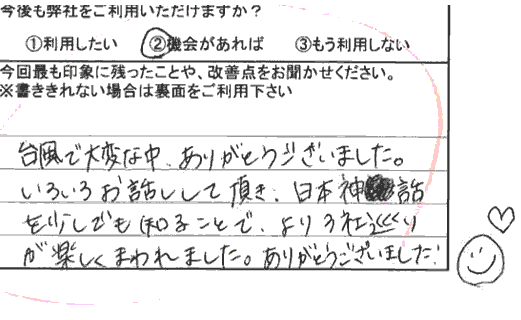 今後も弊社をご利用いただけますか？
①利用したい　②機会があれば　③もう利用しない
今回最も印象に残ったことや、改善点をお聞かせください。
※書ききれない場合は裏面をご利用下さい
台風で大変な中、ありがとうございました。
いろいろお話しして頂き、日本神話
を少しでも知ることで、より3社巡り
が楽しくまわれました。ありがとうございました!